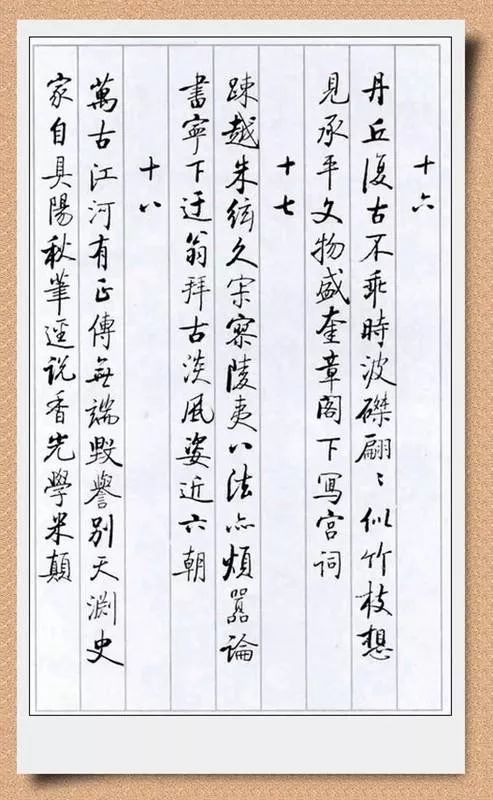 十六
丹丘復古不乖時波磔翩〻似竹枝想
見承平文物盛奎章閣下写宮詞
十七
疎越朱絃久寂寥陵夷八法亦煩囂論
書寧下迂翁拜古淡風姿近六朝
十八
萬古江河有正傳無端毀譽別天淵史
家自具陽秋筆逕說香光學米顛